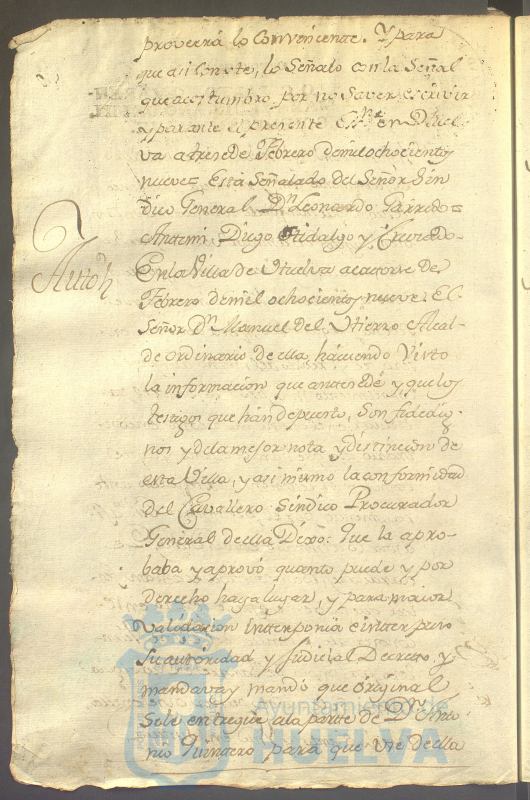 proveerá lo Convenicente. Y para
que asi Conste, lo Señalo con la Señal
que acostumbro por no Saver escrivir
y par ante el presente Essno en Huel-
va a trese de Febrero demilochocientos
nueve = Está Señalado del Señor Sin
dico General Dn Leonardo Garrido =
Antemi, Diego Hidalgo y Cruzado =
Auto
En la Villa de Huelva a catorse de
Febrero demil ochocientos nueve: El
Señor Dn Manuel del Hierro Alcal-
de ordinario de ella, haviendo Visto
la informacion que antecede y que los
testigos que hán depuesto, Son fidedig-
nos y dela mejor nota y distincion de
esta Villa, y asi mismo la conformidad
del Cavallero Sindico Procurador
General de ella Dixo: Que la apro-
baba y aprovó quanto puede y por
derecho haya lugar, y para maior
validacion interponia é interpuso
Su autoridad y Judicial Decreto, y
mandava y mandó que original
Sele entregue ala parte de Dn Anto
nio Quintero para que Vse de ella
Ayuntamiento de
HUELVA